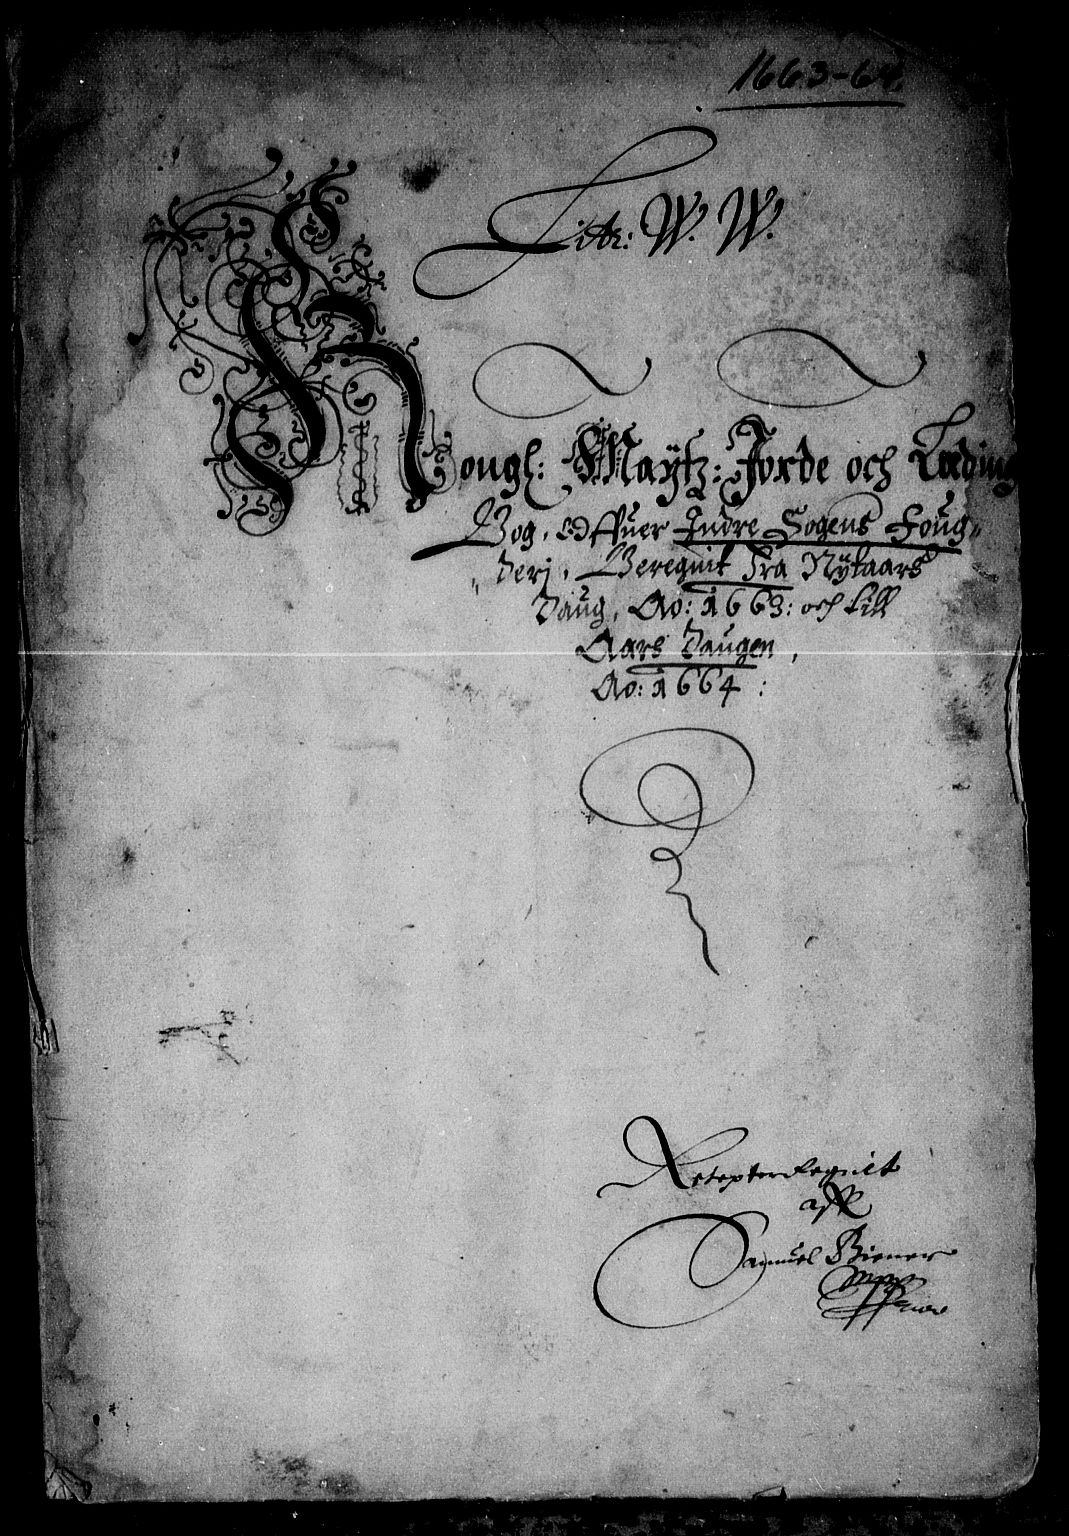 1663-64.
Litr: W. W.
Kongl: Maÿtz: Jorde och Leding
Bog, Offuer Indre Sogens Foug-
derj, Beregnit Fra Nÿtaars
Daug, Ao: 1663: och till
Aars Daugen,
Ao: 1664:
aff
Samuel Biener